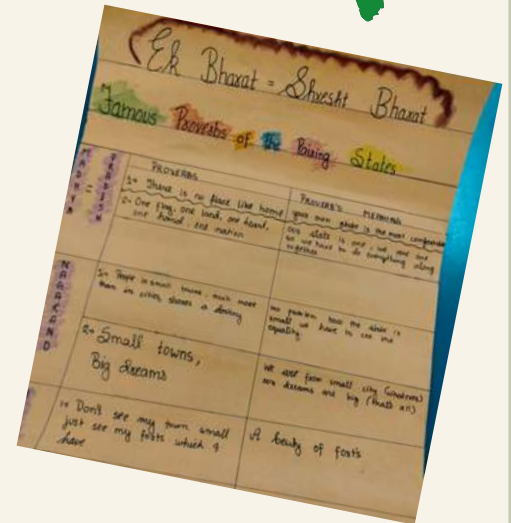 Ek Bharat = Shresht Bharat
Famous Proverbs of the Pairing States
MADHYA PRADESH
PROVERBS
PROVERB'S MEANING
1- There is no place like home
your own state is the most comfortable
2- One flag, one land, one heart,
one hand, one nation
our state is one, we are one
so we have to do everything along
together
NAGALAND
1- People in small towns, much more
than in cities, shows a destiny
no problem, how the state is
small we have to see the
equality.
2- Small towns,
Big dreams
We are from small city (whatever)
our dreams are big (that's all)
1- Don't see my town small
just see my forts which I
have
A beauty of forts